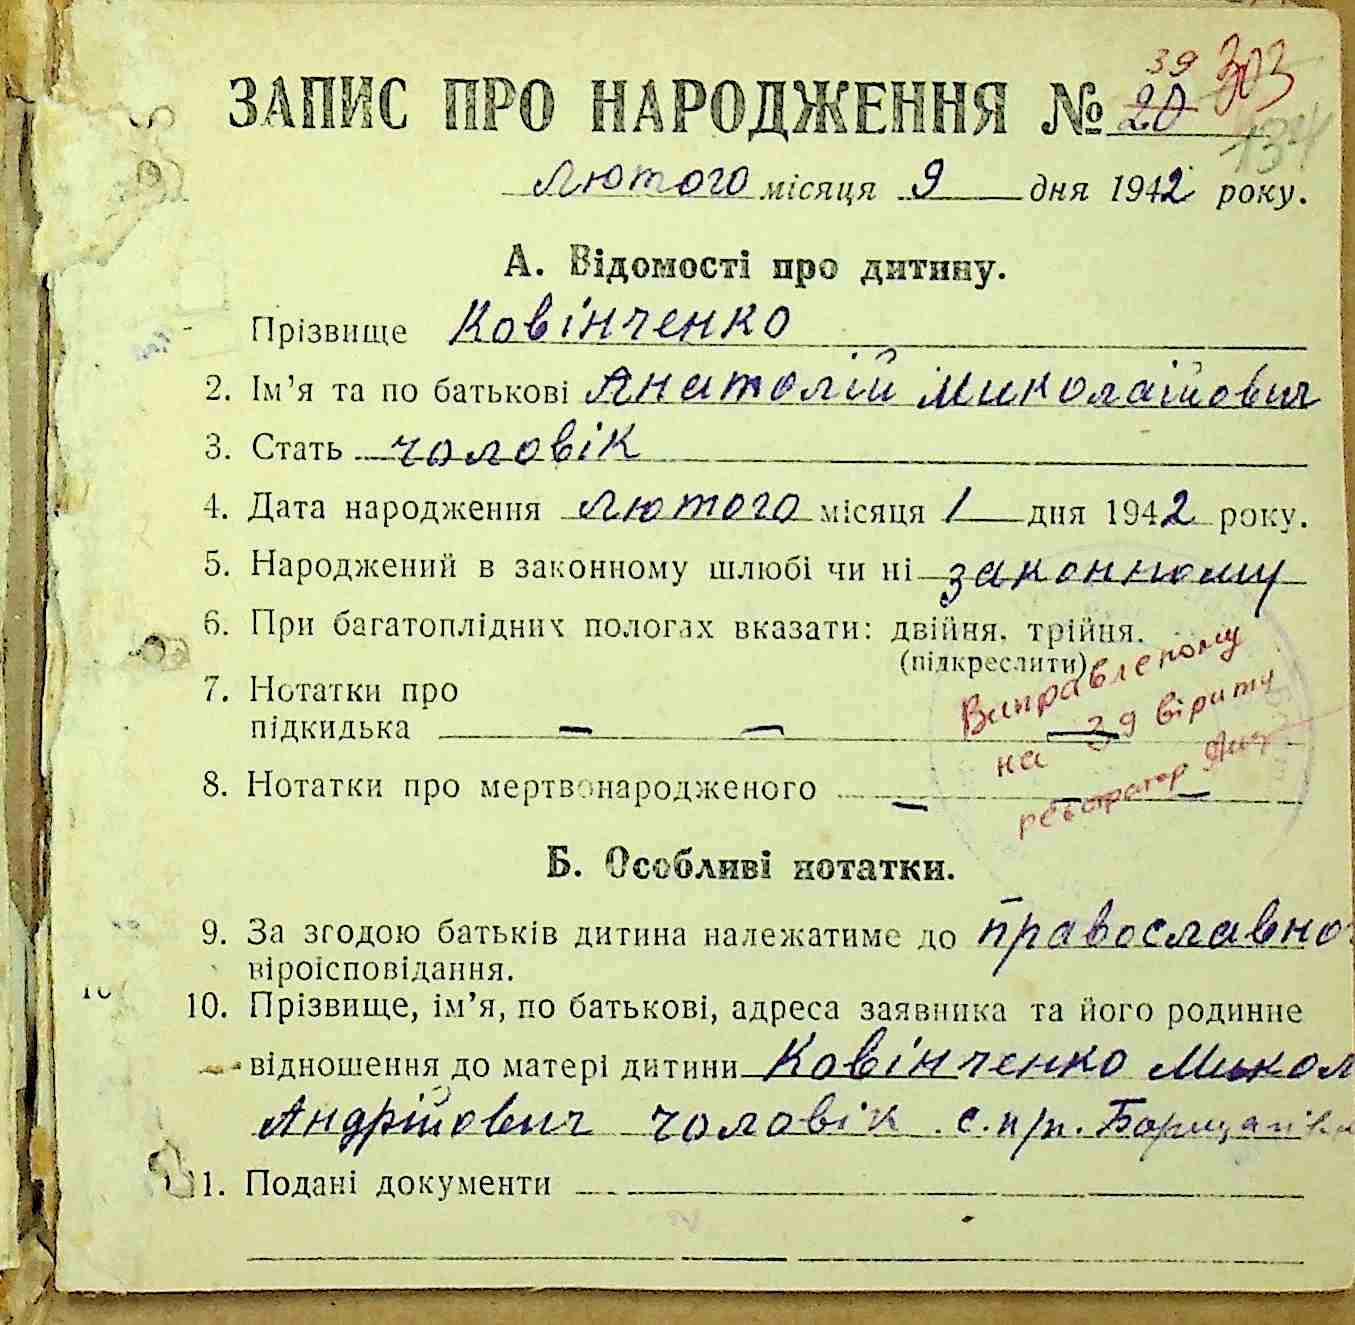 39 303
ЗАПИС ПРО НАРОДЖЕННЯ № 20
134
лютого місяця 9 дня 1942 року.
А. Відомості про дитину.
Прізвище Ковінченко
2. Ім'я та по батькові Анатолій Миколайович
3. Стать чоловік
4. Дата народження лютого місяця 1 дня 1942 року.
5. Народжений в законному шлюбі чи ні законному
6. При багатоплідних пологах вказати: двійня, трійня.
(підкреслити)
Виправленому
7. Нотатки про
підкидька — — —
на 39 вірити
8. Нотатки про мертвонародженого — — —
реєстратор
Б. Особливі нотатки.
9. За згодою батьків дитина належатиме до православно
віроісповідання.
10. Прізвище, ім'я, по батькові, адреса заявника та його родинне
відношення до матері дитини Ковінченко Микол
Андрійович чоловік с. п/п. Борщагівка
11. Подані документи